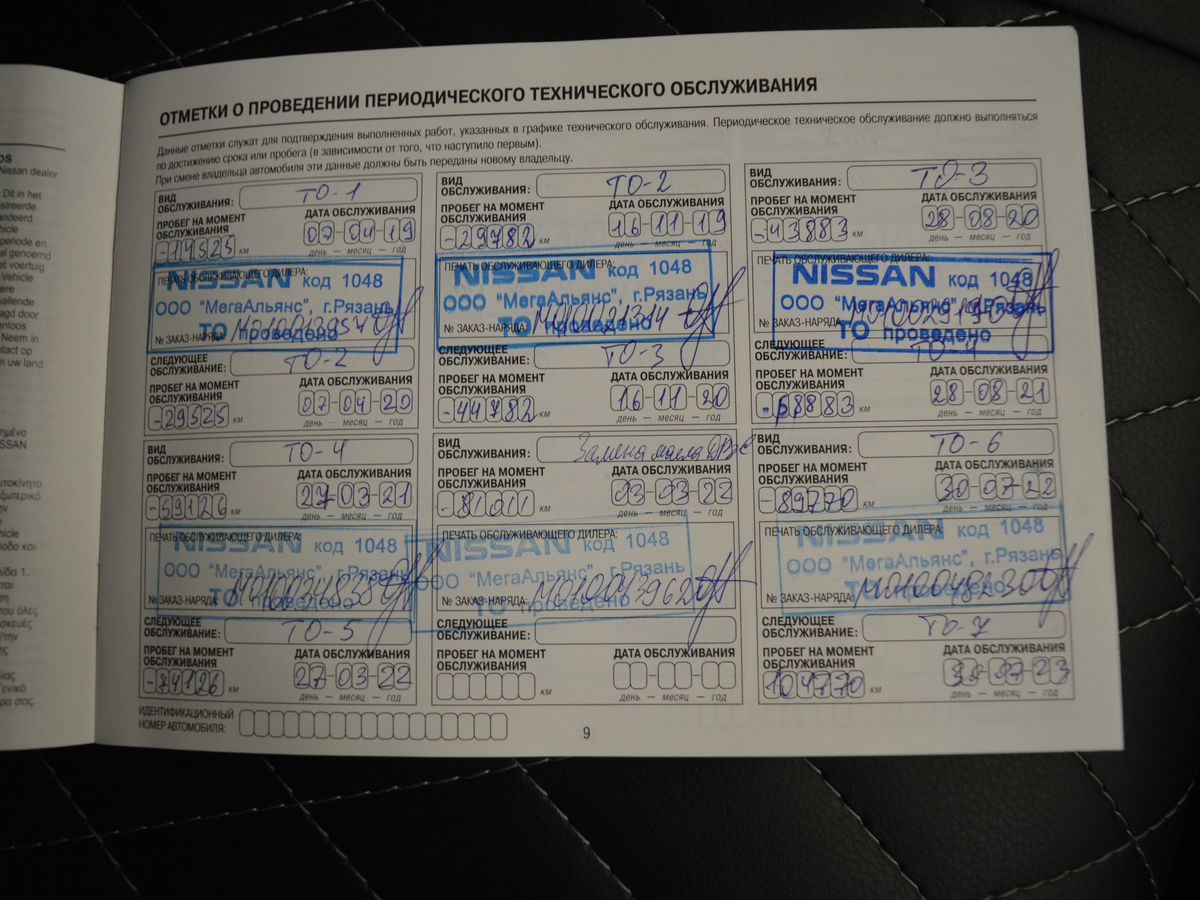 os
Nissan dealer
Dit in het
periode en
al genoemd
t voertuig
Vehicle
ere
allende
agd door
enloos
Neem in
ntact op
n uw land.
ISSAN
ОТМЕТКИ О ПРОВЕДЕНИИ ПЕРИОДИЧЕСКОГО ТЕХНИЧЕСКОГО ОБСЛУЖИВАНИЯ
Данные отметки служат для подтверждения выполненных работ, указанных в графике технического обслуживания. Периодическое техническое обслуживание должно выполняться
по достижению срока или пробега (в зависимости от того, что наступило первым).
При смене владельца автомобиля эти данные должны быть переданы новому владельцу.
ВИД ОБСЛУЖИВАНИЯ: ТО-1
ПРОБЕГ НА МОМЕНТ ОБСЛУЖИВАНИЯ ДАТА ОБСЛУЖИВАНИЯ
-14525 км 07-04-19
день — месяц — год
ПЕЧАТЬ ОБСЛУЖИВАЮЩЕГО ДИЛЕРА:
NISSAN код 1048
ООО "МегаАльянс", г.Рязань
ТО проведено
№ ЗАКАЗ-НАРЯДА:
СЛЕДУЮЩЕЕ ОБСЛУЖИВАНИЕ: ТО-2
ПРОБЕГ НА МОМЕНТ ОБСЛУЖИВАНИЯ ДАТА ОБСЛУЖИВАНИЯ
-29525 км 07-04-20
день — месяц — год
ВИД ОБСЛУЖИВАНИЯ: ТО-2
ПРОБЕГ НА МОМЕНТ ОБСЛУЖИВАНИЯ ДАТА ОБСЛУЖИВАНИЯ
-29782 км 16-11-19
день — месяц — год
ПЕЧАТЬ ОБСЛУЖИВАЮЩЕГО ДИЛЕРА:
NISSAN код 1048
ООО "МегаАльянс", г.Рязань
ТО проведено
№ ЗАКАЗ-НАРЯДА: МО10021314
СЛЕДУЮЩЕЕ ОБСЛУЖИВАНИЕ: ТО-3
ПРОБЕГ НА МОМЕНТ ОБСЛУЖИВАНИЯ ДАТА ОБСЛУЖИВАНИЯ
-44782 км 16-11-20
день — месяц — год
ВИД ОБСЛУЖИВАНИЯ: ТО-3
ПРОБЕГ НА МОМЕНТ ОБСЛУЖИВАНИЯ ДАТА ОБСЛУЖИВАНИЯ
-43883 км 28-08-20
день — месяц — год
ПЕЧАТЬ ОБСЛУЖИВАЮЩЕГО ДИЛЕРА:
NISSAN код 1048
ООО "МегаАльянс", г.Рязань
ТО проведено
№ ЗАКАЗ-НАРЯДА:
СЛЕДУЮЩЕЕ ОБСЛУЖИВАНИЕ: ТО-4
ПРОБЕГ НА МОМЕНТ ОБСЛУЖИВАНИЯ ДАТА ОБСЛУЖИВАНИЯ
км 28-08-21
день — месяц — год
ВИД ОБСЛУЖИВАНИЯ: ТО-4
ПРОБЕГ НА МОМЕНТ ОБСЛУЖИВАНИЯ ДАТА ОБСЛУЖИВАНИЯ
-59126 км 27-03-21
день — месяц — год
ПЕЧАТЬ ОБСЛУЖИВАЮЩЕГО ДИЛЕРА:
NISSAN код 1048
ООО "МегаАльянс", г.Рязань
ТО проведено
№ ЗАКАЗ-НАРЯДА: МО10034838
СЛЕДУЮЩЕЕ ОБСЛУЖИВАНИЕ: ТО-5
ПРОБЕГ НА МОМЕНТ ОБСЛУЖИВАНИЯ ДАТА ОБСЛУЖИВАНИЯ
-74126 км 27-03-22
день — месяц — год
ВИД ОБСЛУЖИВАНИЯ: Замена масла ДВС
ПРОБЕГ НА МОМЕНТ ОБСЛУЖИВАНИЯ ДАТА ОБСЛУЖИВАНИЯ
-81011 км 03-03-22
день — месяц — год
ПЕЧАТЬ ОБСЛУЖИВАЮЩЕГО ДИЛЕРА:
NISSAN код 1048
ООО "МегаАльянс", г.Рязань
ТО проведено
№ ЗАКАЗ-НАРЯДА: МО10043962
СЛЕДУЮЩЕЕ ОБСЛУЖИВАНИЕ:
ПРОБЕГ НА МОМЕНТ ОБСЛУЖИВАНИЯ ДАТА ОБСЛУЖИВАНИЯ
км
день — месяц — год
ВИД ОБСЛУЖИВАНИЯ: ТО-6
ПРОБЕГ НА МОМЕНТ ОБСЛУЖИВАНИЯ ДАТА ОБСЛУЖИВАНИЯ
-89770 км 30-07-22
день — месяц — год
ПЕЧАТЬ ОБСЛУЖИВАЮЩЕГО ДИЛЕРА:
NISSAN код 1048
ООО "МегаАльянс", г.Рязань
ТО проведено
№ ЗАКАЗ-НАРЯДА: МО10048230
СЛЕДУЮЩЕЕ ОБСЛУЖИВАНИЕ: ТО-7
ПРОБЕГ НА МОМЕНТ ОБСЛУЖИВАНИЯ ДАТА ОБСЛУЖИВАНИЯ
104770 км 30-07-23
день — месяц — год
ИДЕНТИФИКАЦИОННЫЙ
НОМЕР АВТОМОБИЛЯ:
9